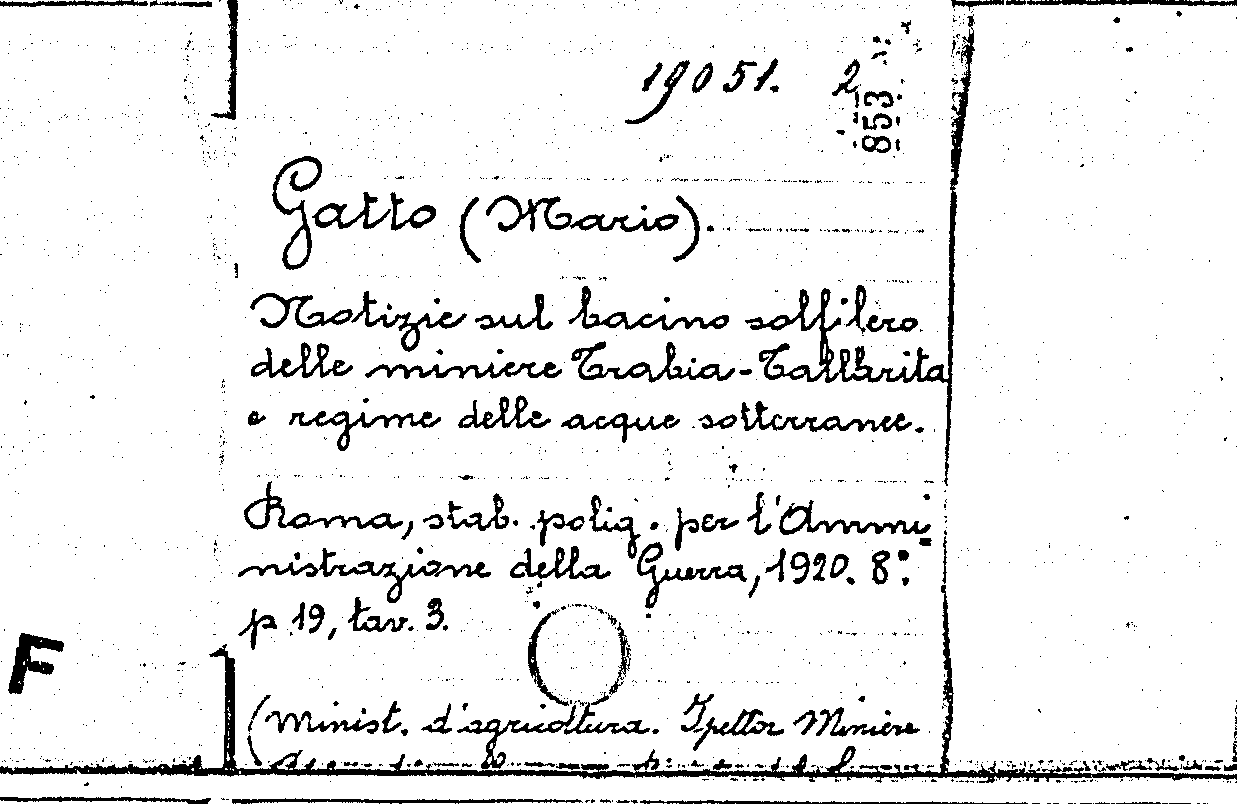 19051. 2
853
Gatto (Mario).
Notizie sul bacino solfifero
delle miniere Trabia-Tallarita
e regime delle acque sotterranee.
Roma, stab. polig. per l'Ammi
nistrazione della Guerra, 1920. 8°.
p 19, tav. 3.
F
(Minist. d'agricoltura. Ispettor Miniere